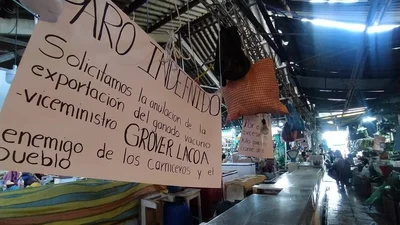 PARO INDEFINIDO
Solicitamos la anulacion de la
exportación del ganado vacuno
-viceministro GROVER LACOA
enemigo de los carniceros y el
pueblo